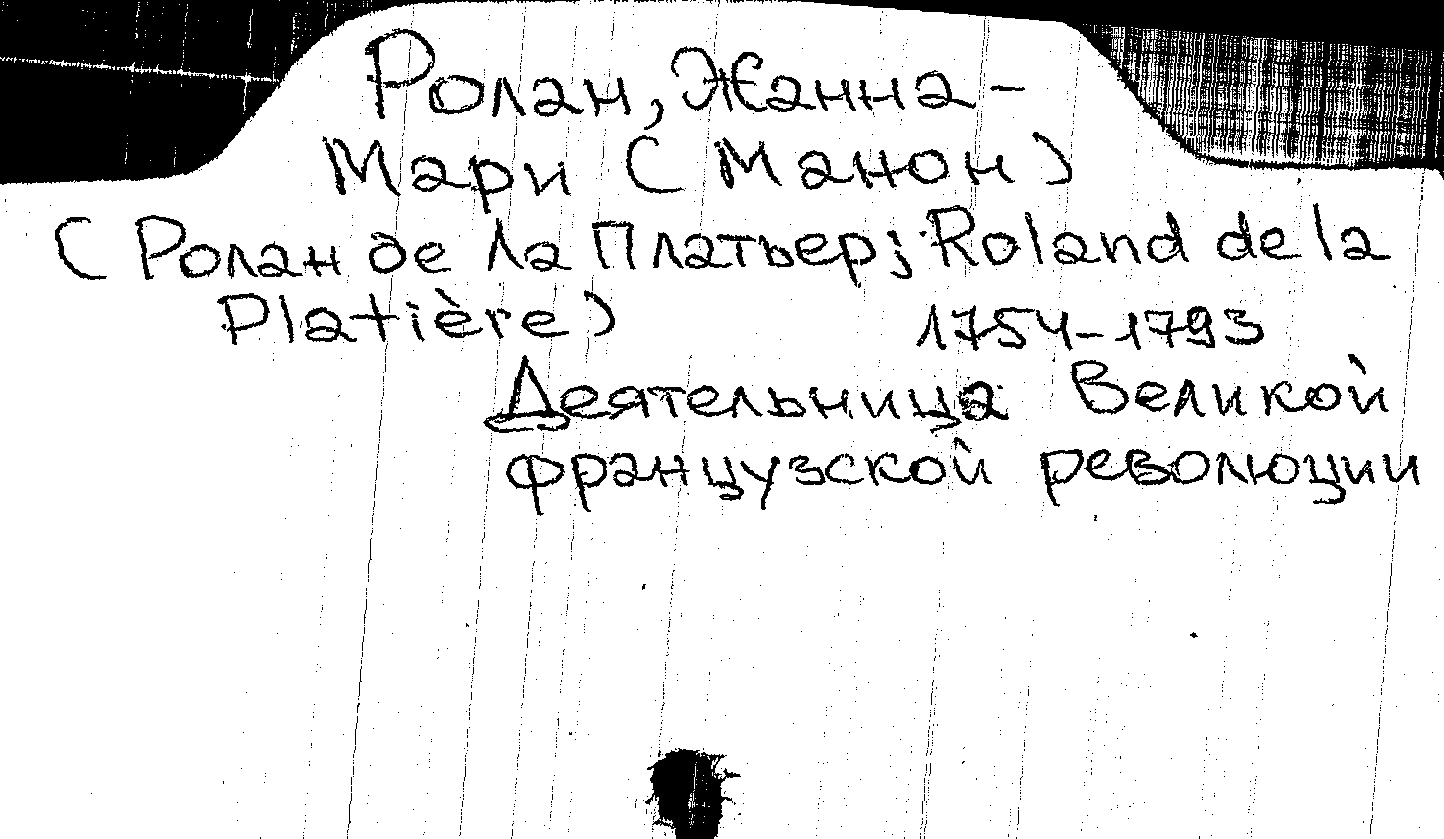 Ролан, Жанна-
Мари (Манон)
(Ролан де ла Платьер; Roland de la
Platière) 1754-1793
Деятельница Великой
французской революции